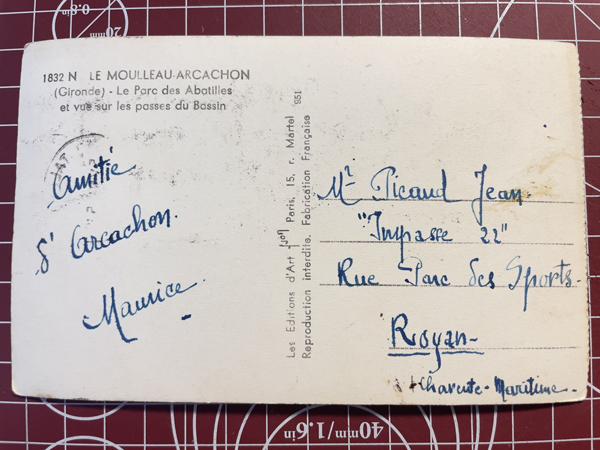 1832 N LE MOULLEAU-ARCACHON
(Gironde) - Le Parc des Abatilles
et vue sur les passes du Bassin
Amitié
d' Arcachon.
Maurice.
Les Editions d'Art "JON" Paris, 15, r. Martel 951
Reproduction interdite. Fabrication Française
Mr Picaud Jean.
"Impasse 22"
Rue Parc des Sports.
Royan-
Charente-Maritime.
20mm
40mm/1.6in
0.8in